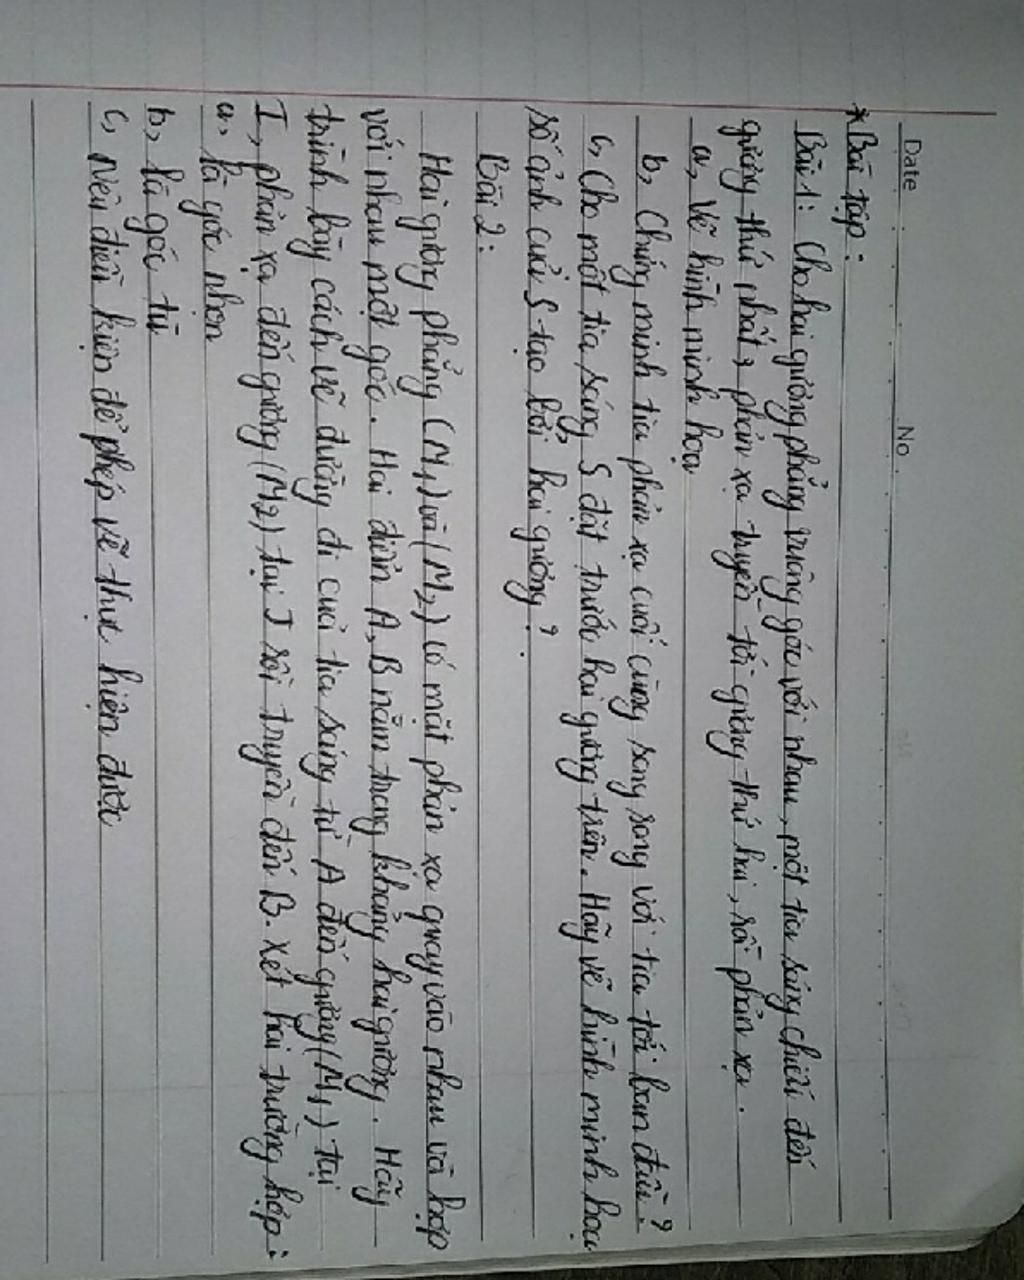 Date
No.
*Bài tập:
Bài 1: Cho hai gương phẳng vuông góc với nhau, một tia sáng chiếu đến
gương thứ nhất, phản xạ truyền tới gương thứ hai, rồi phản xạ.
a, Vẽ hình minh họa
b, Chứng minh tia phản xạ cuối cùng song song với tia tới ban đầu?
c, Cho một tia sáng S đặt trước hai gương trên. Hãy vẽ hình minh họa
số ảnh của S tạo bởi hai gương?.
Bài 2:
Hai gương phẳng (M1) và (M2) có mặt phản xạ quay vào nhau và hợp
với nhau một góc. Hai điểm A, B nằm trong khoảng hai gương. Hãy
trình bày cách vẽ đường đi của tia sáng từ A đến gương (M1) tại
I, phản xạ đến gương (M2) tại J rồi truyền đến B. Xét hai trường hợp:
a, là góc nhọn
b, là góc tù
c, Nêu điều kiện để phép vẽ thực hiện được